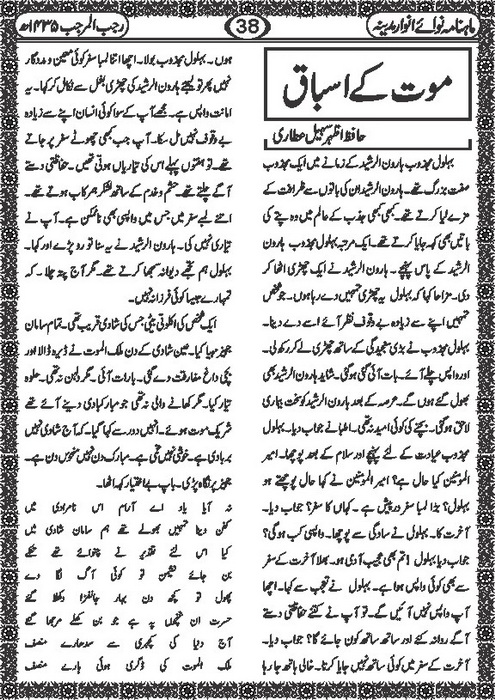 ماہنامہ نوائے انوار مدینہ
38
رجب المرجب ۱۴۳۵ھ
موت کے اسباق
حافظ اظہر سہیل عطاری
بہلول مجذوب ہارون الرشید کے زمانے میں ایک مجذوب
صفت بزرگ تھے۔ ہارون الرشید ان کی باتوں سے ظرافت کے
مزے لیا کرتے تھے۔ کبھی کبھی جذب کے عالم میں وہ پتے کی
باتیں بھی کہہ جایا کرتے تھے۔ ایک مرتبہ بہلول مجذوب ہارون
الرشید کے پاس پہنچے۔ ہارون الرشید نے ایک چھڑی اٹھا کر
دی۔ مزاحا کہا کہ بہلول یہ چھڑی تمہیں دے رہا ہوں۔ جو شخص
تمہیں اپنے سے زیادہ بے وقوف نظر آئے اسے دے دینا۔
بہلول مجذوب نے بڑی سنجیدگی کے ساتھ چھڑی لے کر رکھ لی۔
اور واپس چلے آئے۔ بات آئی گئی ہوگئی۔ شاید ہارون الرشید بھی
بھول گئے ہوں گے۔ عرصہ کے بعد ہارون الرشید کو سخت بیماری
لاحق ہوگئی۔ بچنے کی کوئی امید نہ تھی۔ اطبا نے جواب دیدیا۔ بہلول
مجذوب عیادت کے لئے پہنچے اور سلام کے بعد پوچھا۔ امیر
المومنین کیا حال ہے؟ امیر المومنین نے کہا حال پوچھتے ہو
بہلول؟ بڑا لمبا سفر درپیش ہے۔ کہاں کا سفر؟ جواب دیا۔
آخرت کا۔ بہلول نے سادگی سے پوچھا۔ واپسی کب ہوگی؟
جواب دیا بہلول! تم بھی عجیب آدمی ہو۔ بھلا آخرت کے سفر
سے بھی کوئی واپس ہوا ہے۔ بہلول نے تعجب سے کہا۔ اچھا
آپ واپس نہیں آئیں گے۔ تو آپ نے کتنے حفاظتی دستے
آگے روانہ کئے اور ساتھ ساتھ کون جائے گا؟ جواب دیا۔
آخرت کے سفر میں کوئی ساتھ نہیں جایا کرتا۔ خالی ہاتھ جا رہا
ہوں۔ بہلول مجذوب بولا۔ اچھا اتنا لمبا سفر کوئی معین و مددگار
نہیں پھر تو لیجئے ہارون الرشید کی چھڑی بغل سے نکال کر کہا۔ یہ
امانت واپس ہے۔ مجھے آپ کے سوا کوئی انسان اپنے سے زیادہ
بے وقوف نہیں مل سکا۔ آپ جب کبھی چھوٹے سفر پر جاتے
تھے۔ تو ہفتوں پہلے اس کی تیاریاں ہوتی تھیں۔ حفاظتی دستے
آگے چلتے تھے۔ حشم و خدم کے ساتھ لشکر ہمرکاب ہوتے تھے۔
اتنے لمبے سفر میں جس میں واپسی بھی ناممکن ہے۔ آپ نے
تیاری نہیں کی۔ ہارون الرشید نے یہ سنا تو رو پڑے اور کہا۔
بہلول ہم تجھے دیوانہ سمجھا کرتے تھے۔ مگر آج پتہ چلا۔ کہ
تمہارے جیسا کوئی فرزانہ نہیں۔
ایک شخص کی اکلوتی بیٹی جس کی شادی قریب تھی۔ تمام سامان
جہیز مہیا کیا۔ عین شادی کے دن ملک الموت نے ڈیرہ ڈالا اور
بچی داغ مفارقت دے گئی۔ بارات آئی۔ مگر دلہن نہ تھی۔ حلوہ
تیار کیا۔ مگر کھانے والی نہ تھی جو مبارکبادی دینے آئے تھے
شریک موت ہوئے۔ انہیں دور سے کہا گیا۔ کہ آج شادی نہیں
بربادی ہے۔ خوشی نہیں غمی ہے۔ مبارک دن نہیں منحوس دن ہے۔
جہیز پر نگاہ پڑی۔ باپ بے اختیار کہہ اٹھا۔
نہ آیا یاد اے آرام اس نامرادی میں
کفن دینا تمہیں بھولے تھے ہم سامان شادی میں
کیا اس لئے تقدیر نے چنوائے تھے تنکے
بن جائے نشیمن تو کوئی آگ لگا دے
پھول تو کچھ دن بہار جانفزا دکھلا گئے
حسرت ان غنچوں پہ ہے جو بن کھلے مرجھا گئے
آج دنیا کی کچہری سے سدھارے منصف
ملک الموت کی ڈگری ہوئی ہارے منصف